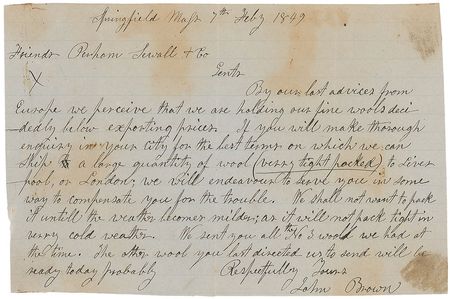 Springfield Mass 7th Feby 1849
Friends Perham Sewall & Co
Gents
By our last advices from
Europe we perceive that we are holding our fine wools deci
dedly below exporting prices. If you will make thorough
enquiry in your City for the best terms on which we can
ship a large quantity of wool (verry tight packed) to Liver
pool, or London; we will endeavour to serve you in some
way to compensate you for the trouble. We shall not want to pack
it untill the weather becomes milder; as it will not pack tight in
verry cold weather. We sent you all the No 3 wool we had at
the time. The other wool you last directed us to send will be
ready today probably Respectfully Yours
John Brown